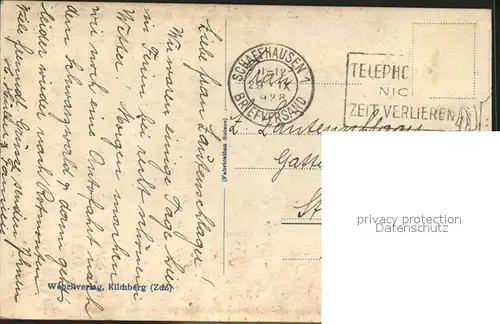 Liebe Frau Lautenschlager!
Wir waren einige Tage hier
in Ferien bei recht schönem
Wetter. Morgen machen
wir noch eine Autofahrt nach
dem Schwarzwald & dann geht's
leider wieder nach Rotmonten
Viele freundl. Grüsse senden Ihnen
Familie
SCHAFFHAUSEN 1
BRIEFVERSAND
TELEPHO
NIC
ZEIT VERLIEREN
L. Lautenschlager
Gatte
(Fabrication Suisse)
Wehrliverlag, Kilchberg (Zch)
privacy
protection